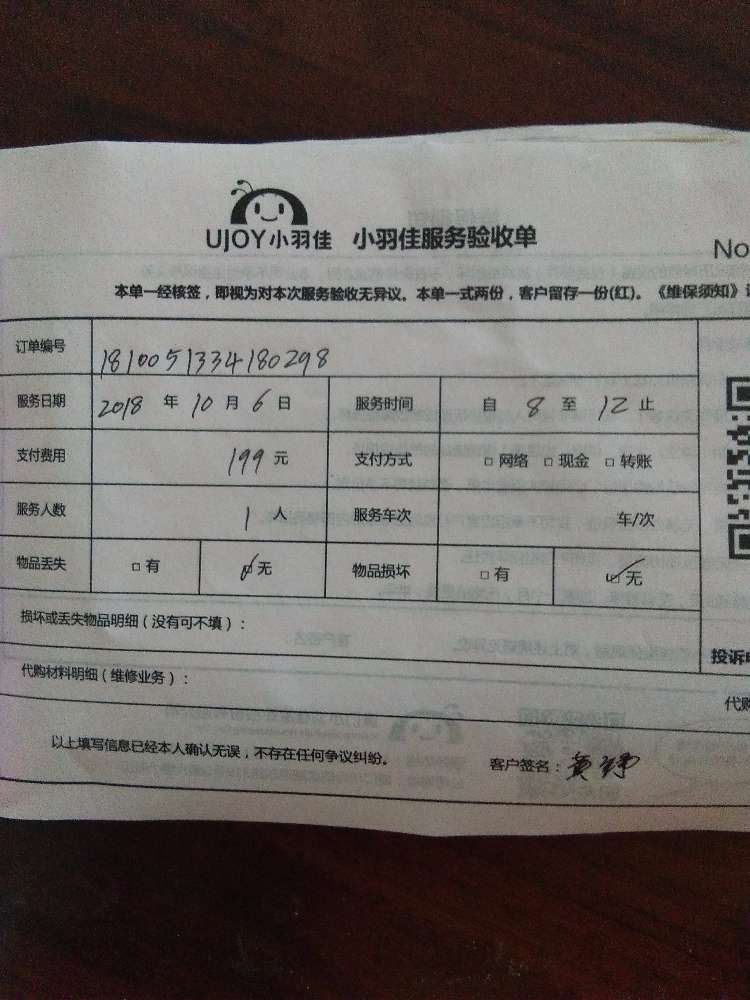 UJOY小羽佳 小羽佳服务验收单
No
本单一经核签，即视为对本次服务验收无异议。本单一式两份，客户留存一份(红)。《维保须知》
订单编号 181005133418029８
服务日期 2018 年 10 月 6 日 服务时间 自 8 至 12 止
支付费用 199 元 支付方式 □网络 □现金 □转账
服务人数 1 人 服务车次 车/次
物品丢失 □有 ☑无 物品损坏 □有 ☑无
损坏或丢失物品明细（没有可不填）：
投诉
代购材料明细（维修业务）：
代购
以上填写信息已经本人确认无误，不存在任何争议纠纷。 客户签名：黄